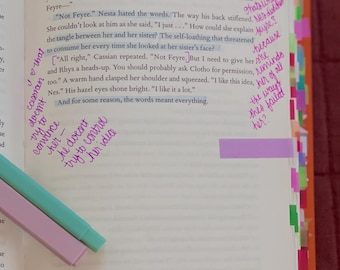 Feyre—"
"Not Feyre." Nesta hated the words. The way his back stiffened
She couldn't look at him as she said, "I just . . ." How could she explain
the tangle between her and her sister? The self-loathing that threatened
to consume her every time she looked at her sister's face?
["All right," Cassian repeated. "Not Feyre.] But I need to give her
and Rhys a heads-up. You should probably ask Clotho for permission,
too." A warm hand clasped her shoulder and squeezed. "I like this idea,
Nes." His hazel eyes shone bright. "I like it a lot."
And for some reason, the words meant everything.
her
because
she
reminds
her of all
the ways
she's failed
her?
that
cassian
doesn't
try to
convince
her—
he doesn't
try to control
her idea